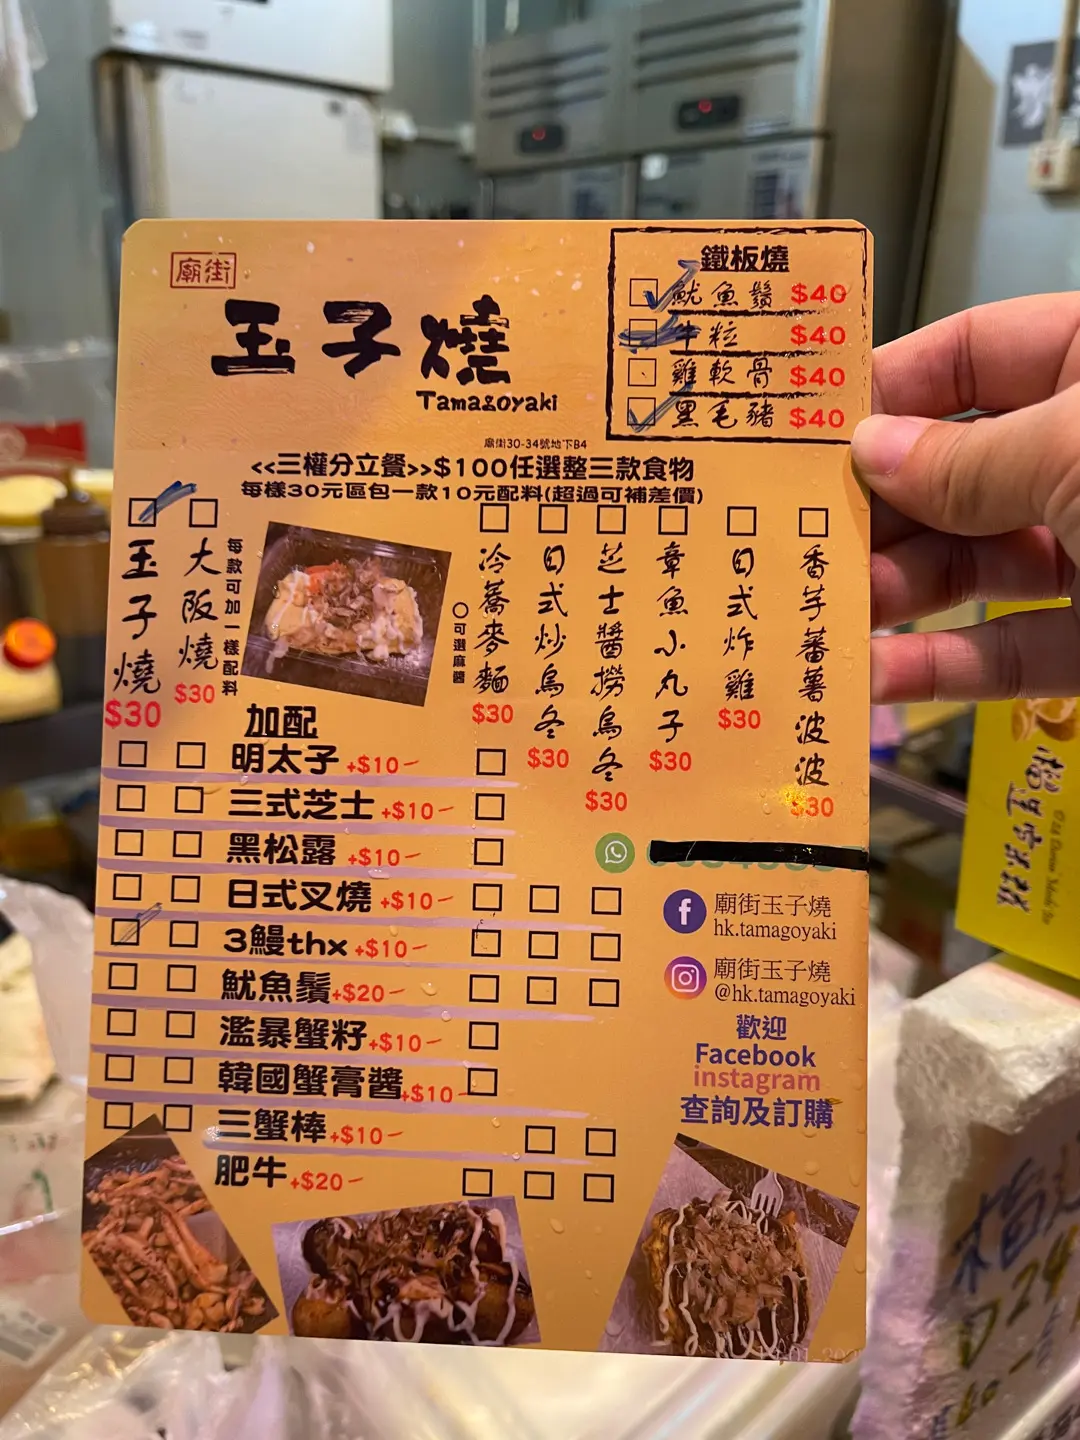 廟街
玉子燒
Tamagoyaki
鐵板燒
魷魚鬚 $40
牛粒 $40
雞軟骨 $40
黑毛豬 $40
廟街30-34號地下B4
<<三權分立餐>>$100任選整三款食物
每樣30元區包一款10元配料(超過可補差價)
玉子燒
$30
大阪燒
$30
每款可加一樣配料
冷蕎麥麵
$30
○可選麻醬
日式炒烏冬
$30
芝士醬撈烏冬
$30
章魚小丸子
$30
日式炸雞
$30
香芋蕃薯波波
$30
加配
明太子 +$10-
三式芝士 +$10-
黑松露 +$10-
日式叉燒 +$10-
3鰻thx +$10-
魷魚鬚 +$20-
濫暴蟹籽 +$10-
韓國蟹膏醬 +$10-
三蟹棒 +$10-
肥牛 +$20-
廟街玉子燒
hk.tamagoyaki
廟街玉子燒
@hk.tamagoyaki
歡迎
Facebook
instagram
查詢及訂購